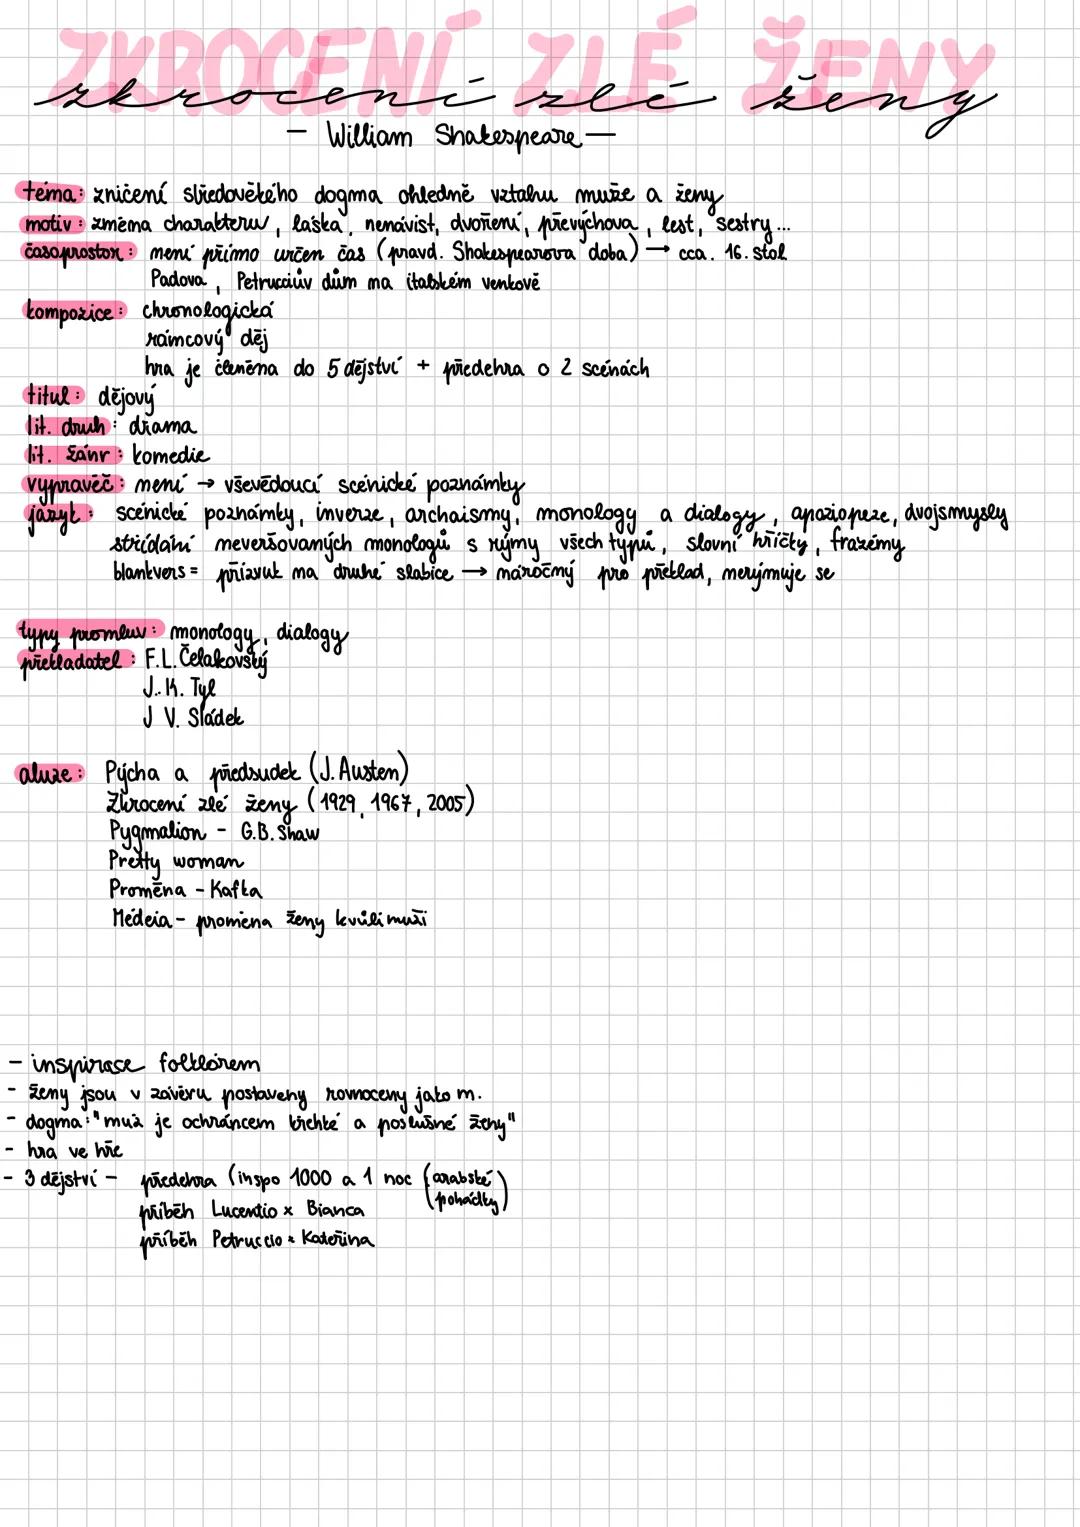 ZKROCENÍ ZLÉ ŽENY
zkrocení zlé ženy
- William Shakespeare -
téma: zničení středověkého dogma ohledně vztahu muže a ženy
motiv: změna charakteru, láska, nenávist, dvoření, převýchova, lest, sestry...
časoprostor: není přímo určen čas (pravd. Shakespearova doba) → cca. 16. stol
Padova, Petrucciův dům na italském venkově
kompozice: chronologická
rámcový děj
hra je členěna do 5 dějství + předehra o 2 scénách
titul: dějový
lit. druh: drama
lit. žánr: komedie
vypravěč: není → vševědoucí scénické poznámky
jazyk: scénické poznámky, inverze, archaismy, monology a dialogy, apoziopeze, dvojsmysly
střídání neveršovaných monologů s rýmy všech typů, slovní hříčky, frazémy
blankvers = přízvuk na druhé slabice → náročný pro překlad, nerýmuje se
typy promluv: monology, dialogy
překladatel: F.L. Čelakovský
J. K. Tyl
J V. Sládek
aluze: Pýcha a předsudek (J. Austen)
Zkrocení zlé ženy (1929, 1967, 2005)
Pygmalion - G.B. Shaw
Pretty woman
Proměna - Kafka
Médeia - proměna ženy kvůli muži
- inspirace folklórem
- ženy jsou v závěru postaveny rovnoceny jako m.
- dogma: "muž je ochráncem křehké a poslušné ženy"
- hra ve hře
- 3 dějství - předehra (inspo 1000 a 1 noc (arabské pohádky)
příběh Lucentio x Bianca
příběh Petruccio x Kateřina